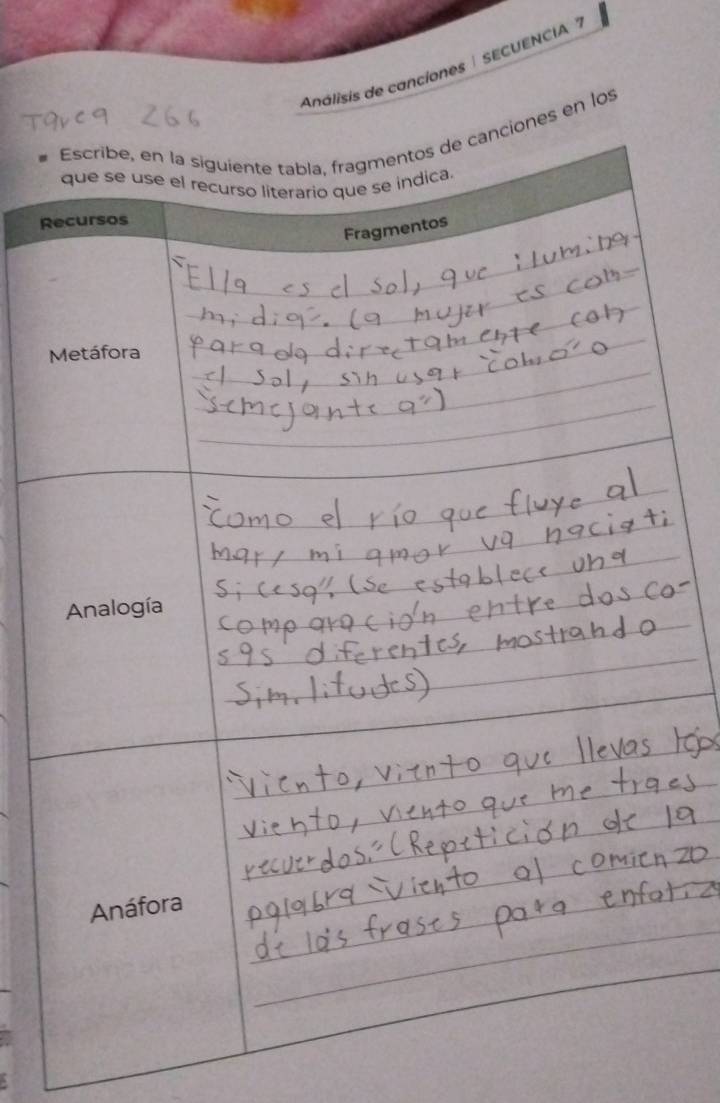 Análisis de canciones | SECUENCIA 7
Tarea 266
Escribe, en la siguiente tabla, fragmentos de canciones en los
que se use el recurso literario que se indica.
Recursos
Fragmentos
Metáfora
"Ella es el sol, que ilumina
mi dia". (a mujer es com-
parada directamente con
el sol, sin usar "como" o
"semejante a")
Analogía
"como el río que fluye al
mar, mi amor va hacia ti
si cesa". (Se establece una
comparación entre dos co-
sas diferentes, mostrando
similitudes)
Anáfora
"Viento, viento que llevas lejos
viento, viento que me traes
recuerdos." (Repetición de la
palabra "viento al comienzo
de las frases para enfatiza